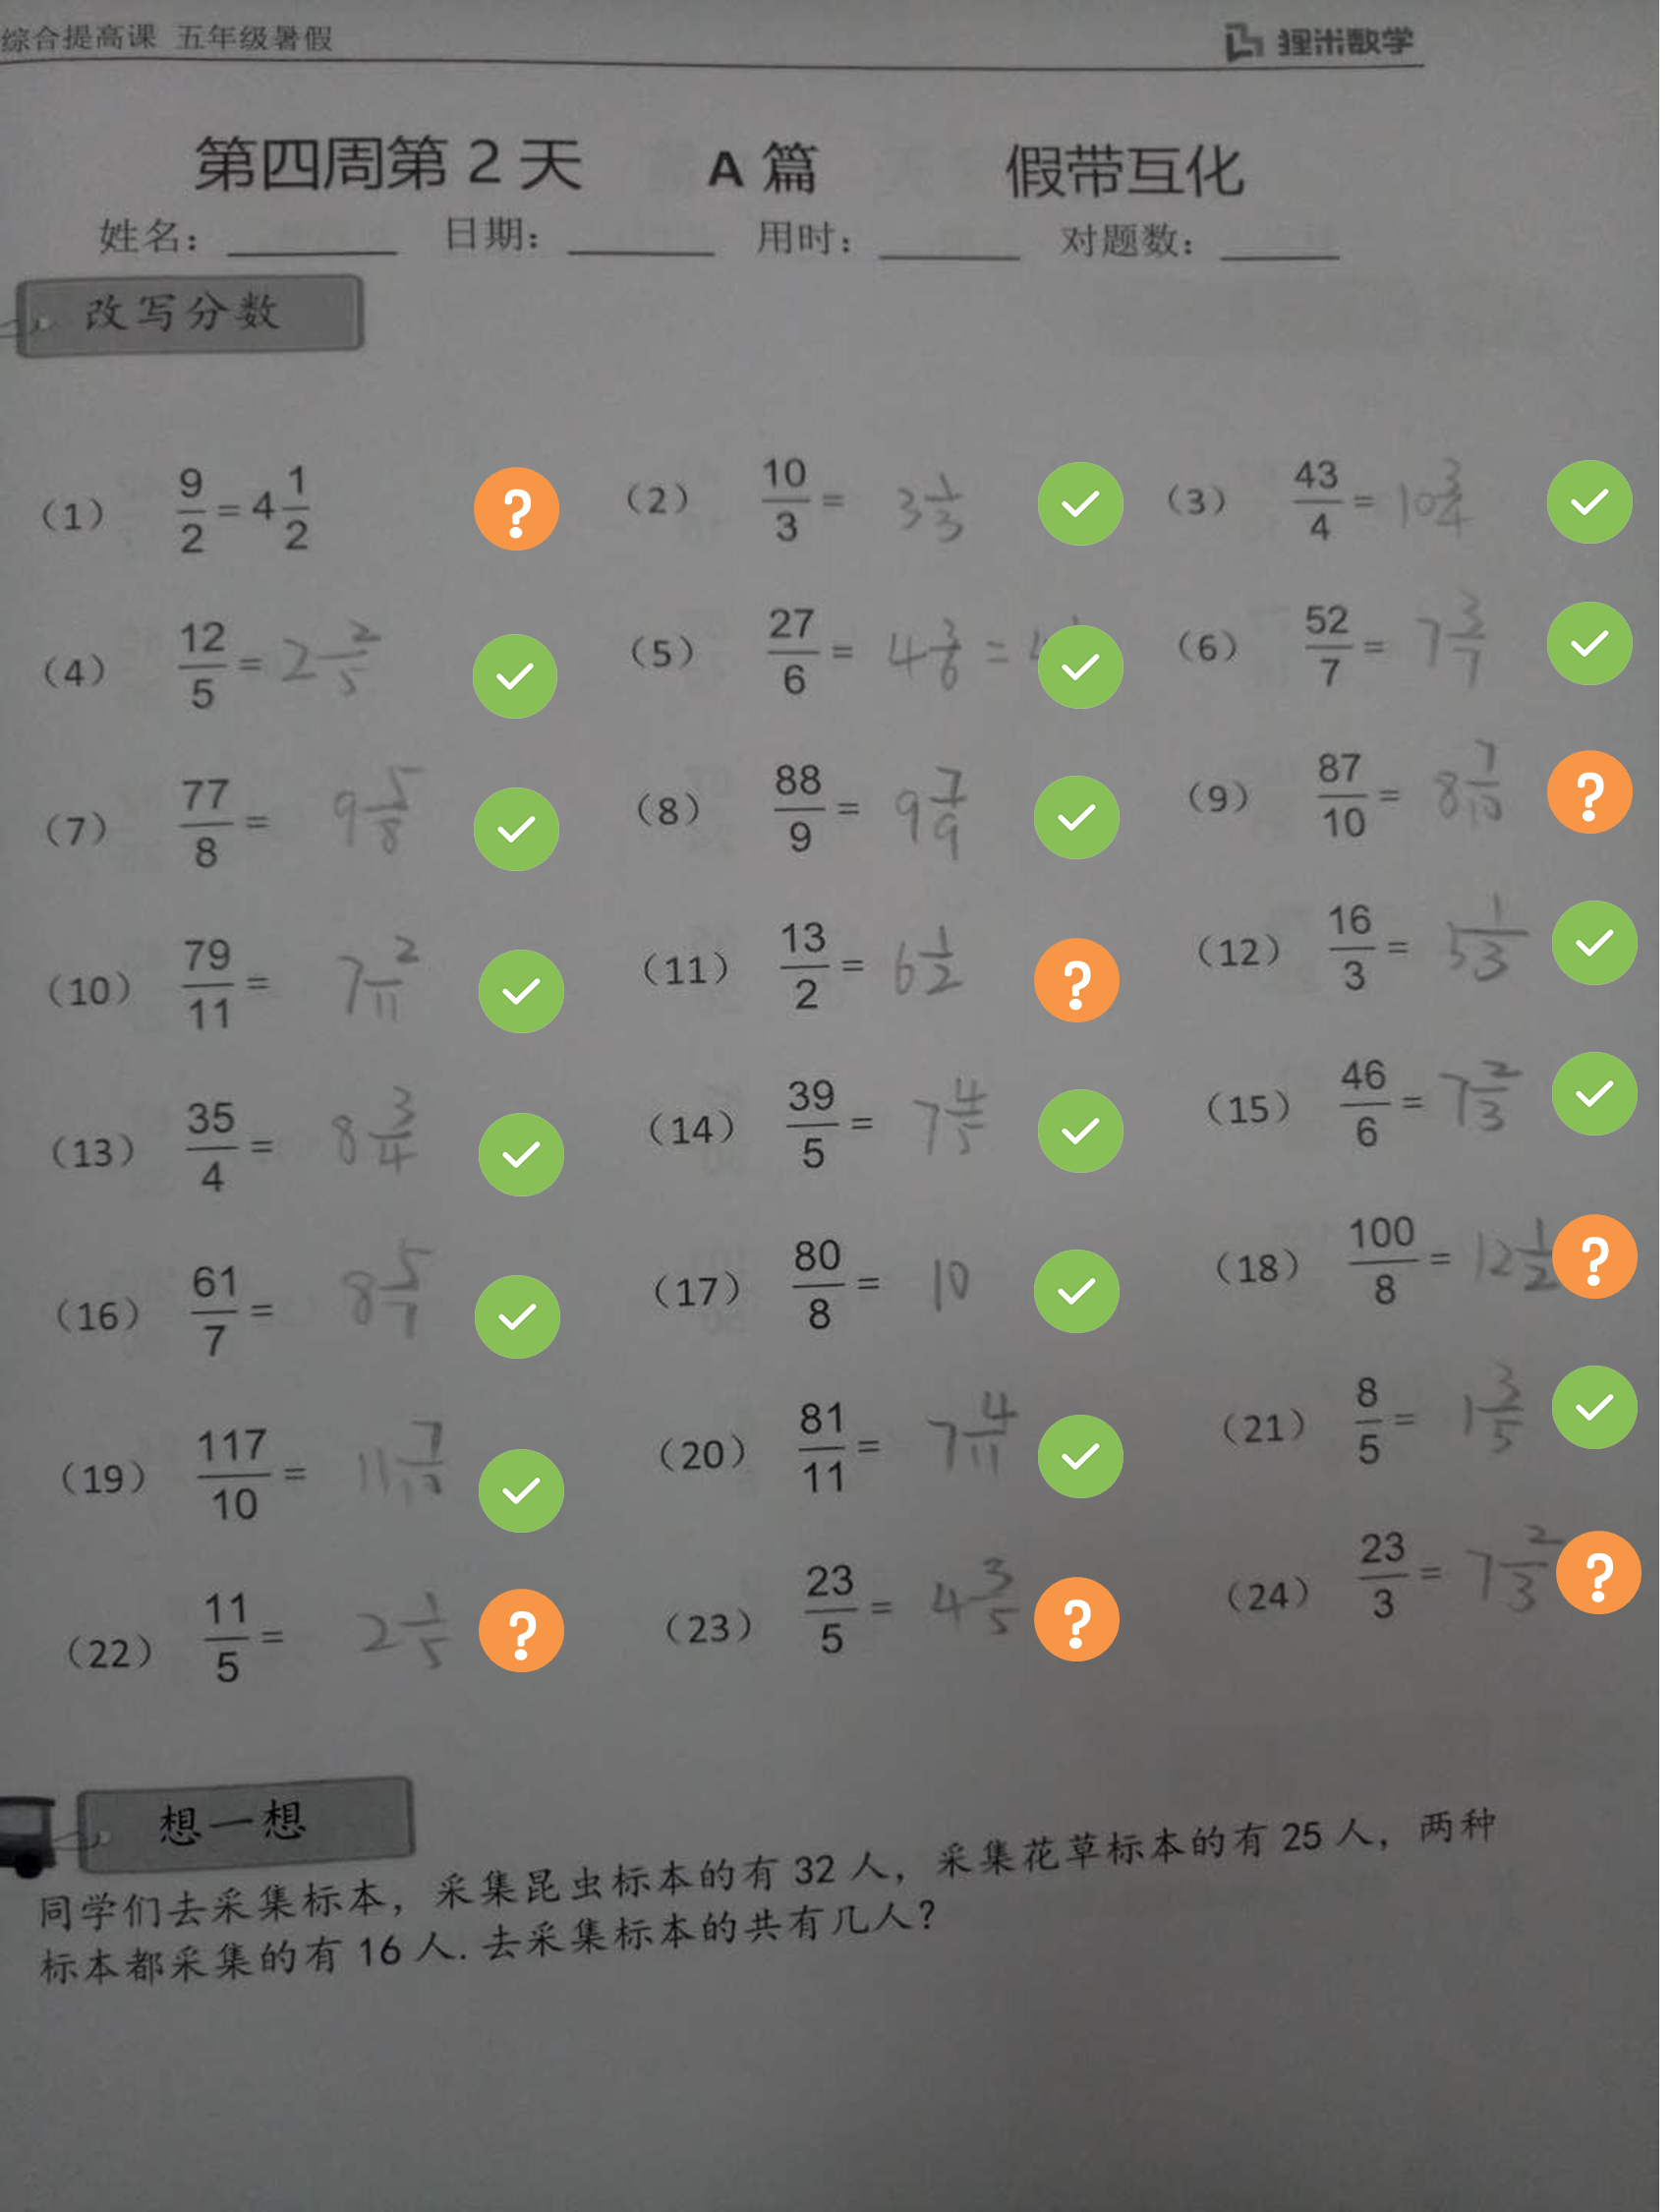 综合提高课 五年级暑假 狸米数学
第四周第 2 天 A 篇 假带互化
姓名：______ 日期：______ 用时：______ 对题数：______
改写分数
（1） 9/2 = 4 1/2 ? （2） 10/3 = 3 1/3 （3） 43/4 = 10 3/4
（4） 12/5 = 2 2/5 （5） 27/6 = 4 3/6 = （6） 52/7 = 7 3/7
（7） 77/8 = 9 5/8 （8） 88/9 = 9 7/9 （9） 87/10 = 8 7/10 ?
（10） 79/11 = 7 2/11 （11） 13/2 = 6 1/2 ? （12） 16/3 = 5 1/3
（13） 35/4 = 8 3/4 （14） 39/5 = 7 4/5 （15） 46/6 = 7 2/3
（16） 61/7 = 8 5/7 （17） 80/8 = 10 （18） 100/8 = 12 1/2 ?
（19） 117/10 = 11 7/10 （20） 81/11 = 7 4/11 （21） 8/5 = 1 3/5
（22） 11/5 = 2 1/5 ? （23） 23/5 = 4 3/5 ? （24） 23/3 = 7 2/3 ?
想一想
同学们去采集标本，采集昆虫标本的有 32 人，采集花草标本的有 25 人，两种
标本都采集的有 16 人. 去采集标本的共有几人？